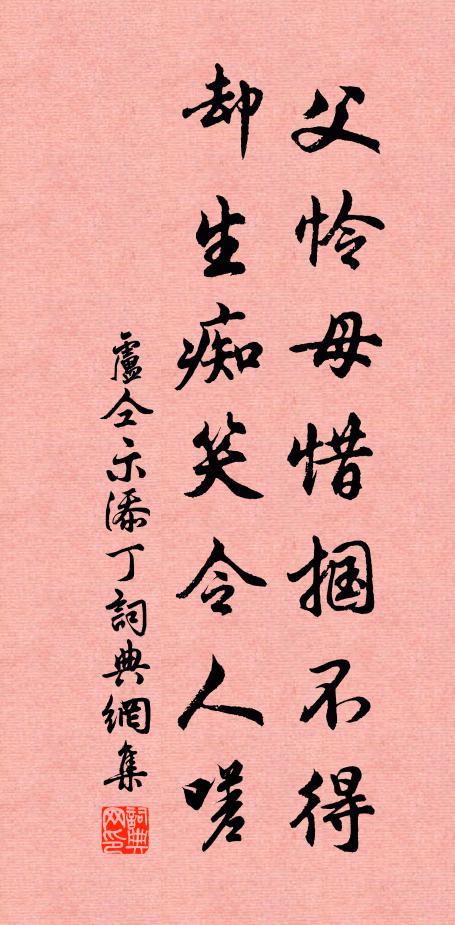 父怜母惜掴不得
却生痴笑令人嗟
盧仝示添丁詞典網集
詞典網印